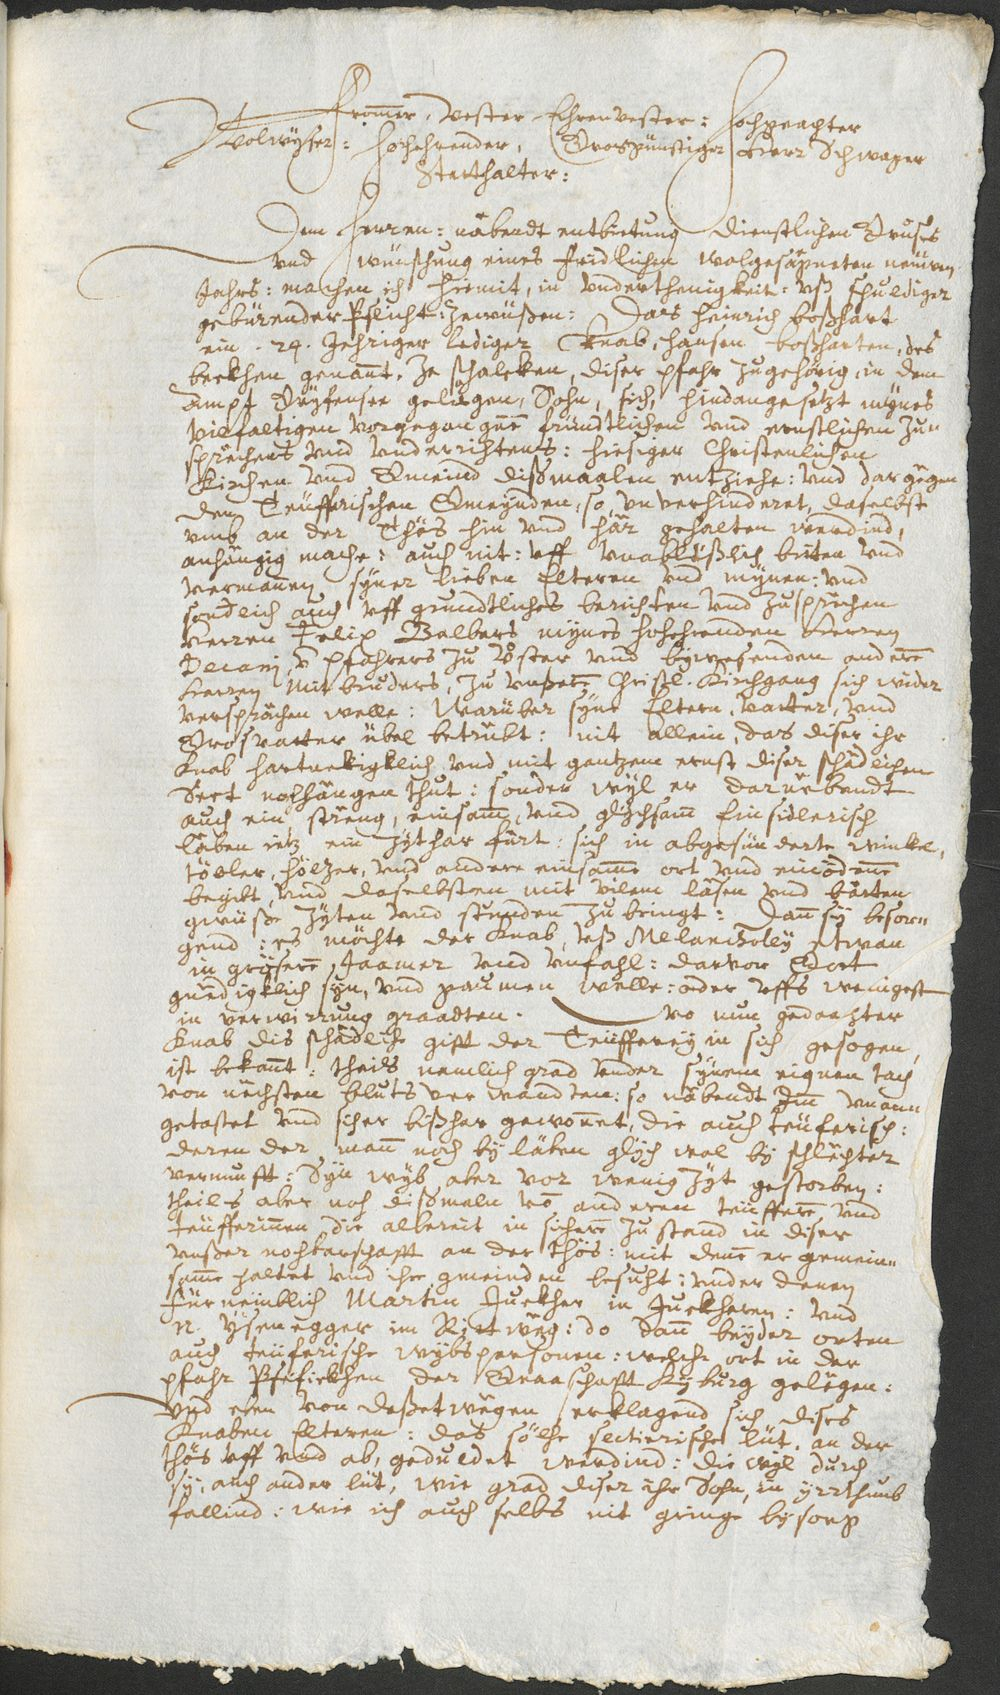 Frommer, Vester, Ehrenvester: Hochgeachter
Wolwyser: Hochehrender, Grosgünstiger Herr Schwager
Statthalter:
Dem Herren: näbendt entbietung dienstlichen Gruses
vnd wünschung eines fridlichen wolgesägneten neüwen
Jahrs: machen ich hiemit, in vnderthenigkeit: vß schuldiger
gebürender Pflicht: zewüßen: Das Heinrich boßhart
ein .24. Jehriger lediger Knab, hansen boßharten, des
beckhen genant, ze schalcken, diser pfahr zugehörig, in dem
Ampt Gryfensee gelägen, Sohn, sich, hindangesetzt mynes
vilfaltigen vorgegangnē früntlichen vnd ernstlichen zu„
sprächens vnd vnderrichtens: hiesiger Christenlichen
Kirchen vnd Gmeind dißmaalen entziehe: vnd dargägen
den Teüfferischen Gmeynden, so vnverhinderet, daselbst
vmb an der Thös hin vnd här gehalten werdind,
anhängig mache: auch nit: vff vnabläßlich bitten vnd
vermanen syner lieben Elteren vnd mynen: vnd
sondlich auch vff gruntliches berichten vnd zusprächen
Herren Felix Balbers mynes hohehrenden Herren
Decani, v̄ pfahrers zu Vster vnd bywesenden anderē
Herren Mitbruders, zu vnßerē Christl. Kirchgang sich wider
versprächen welle: Warüber syne Eltern, vatter, vnd
Grosvatter übel betrübt: nit allein, das diser ihr
Knab hartnekigklich vnd mit gantzem ernst diser schädlichen
Sect nachhängen thut: sonder wyl er darnäbendt
auch ein streng, einsam, vnd glychsam Einsidlerisch
läben ietz ein zythar fürt: sich in abgesünderte winkel,
töbler, hölzer, vnd andere einsame ort vnd einödenē
begibt, vnd daselbsten mit vilem läsen vnd bätten
gwüße zyten vnd stunden zubringt: Dan sy besor„
gend: es möchte der Knab, vß Melancholey etwan
in grösere Jaamer vnd vnfahl: darvor Gott
gnedigklich syn, vnd gaumen welle: oder vffs wenigest
in verwirrung graadten. wo nun gedachter
Knab dis schädliche gift der Teüfferey in sich gesogen,
ist bekant: theils nemlich grad vnder synem eignen tach
von nächsten bluts verwandten: so näbendt Im vnann
getastet vnd sicher bißhar gewonet, die auch teüferisch:
deren der man noch by läben glych wol by schlächter
vernunfft: Syn wyb aber vor wenig zyt gestorben:
theils aber noch dißmaln vō anderen teüfferē vnd
teüfferinnen die albereit in sicherē zustand in diser
vnßer nohbarschafft an der thös: mit denē er gemein„
same haltet vnd ihre gmeinden besucht: vnder denen
fürneinblich Martin Juckher in Juckheren: vnd
N. Ysenegger im Rietwäg: do dan beyder orten
auch teüferische wybspersonen: welche ort in der
pfahr Pfefickhen der Graaschafft Kyburg gelägen:
vnd eben von deßetwägen erklagend sich dises
Knaben Elteren: das sölche sectierische lüt, an der
thös vff vnd ab, geduldet werdind: die wyl durch
sy, auch ander lüt, wie grad diser ihr Sohn, in yrrthumb
fallind: wie ich auch selbs nit gringe bysorg